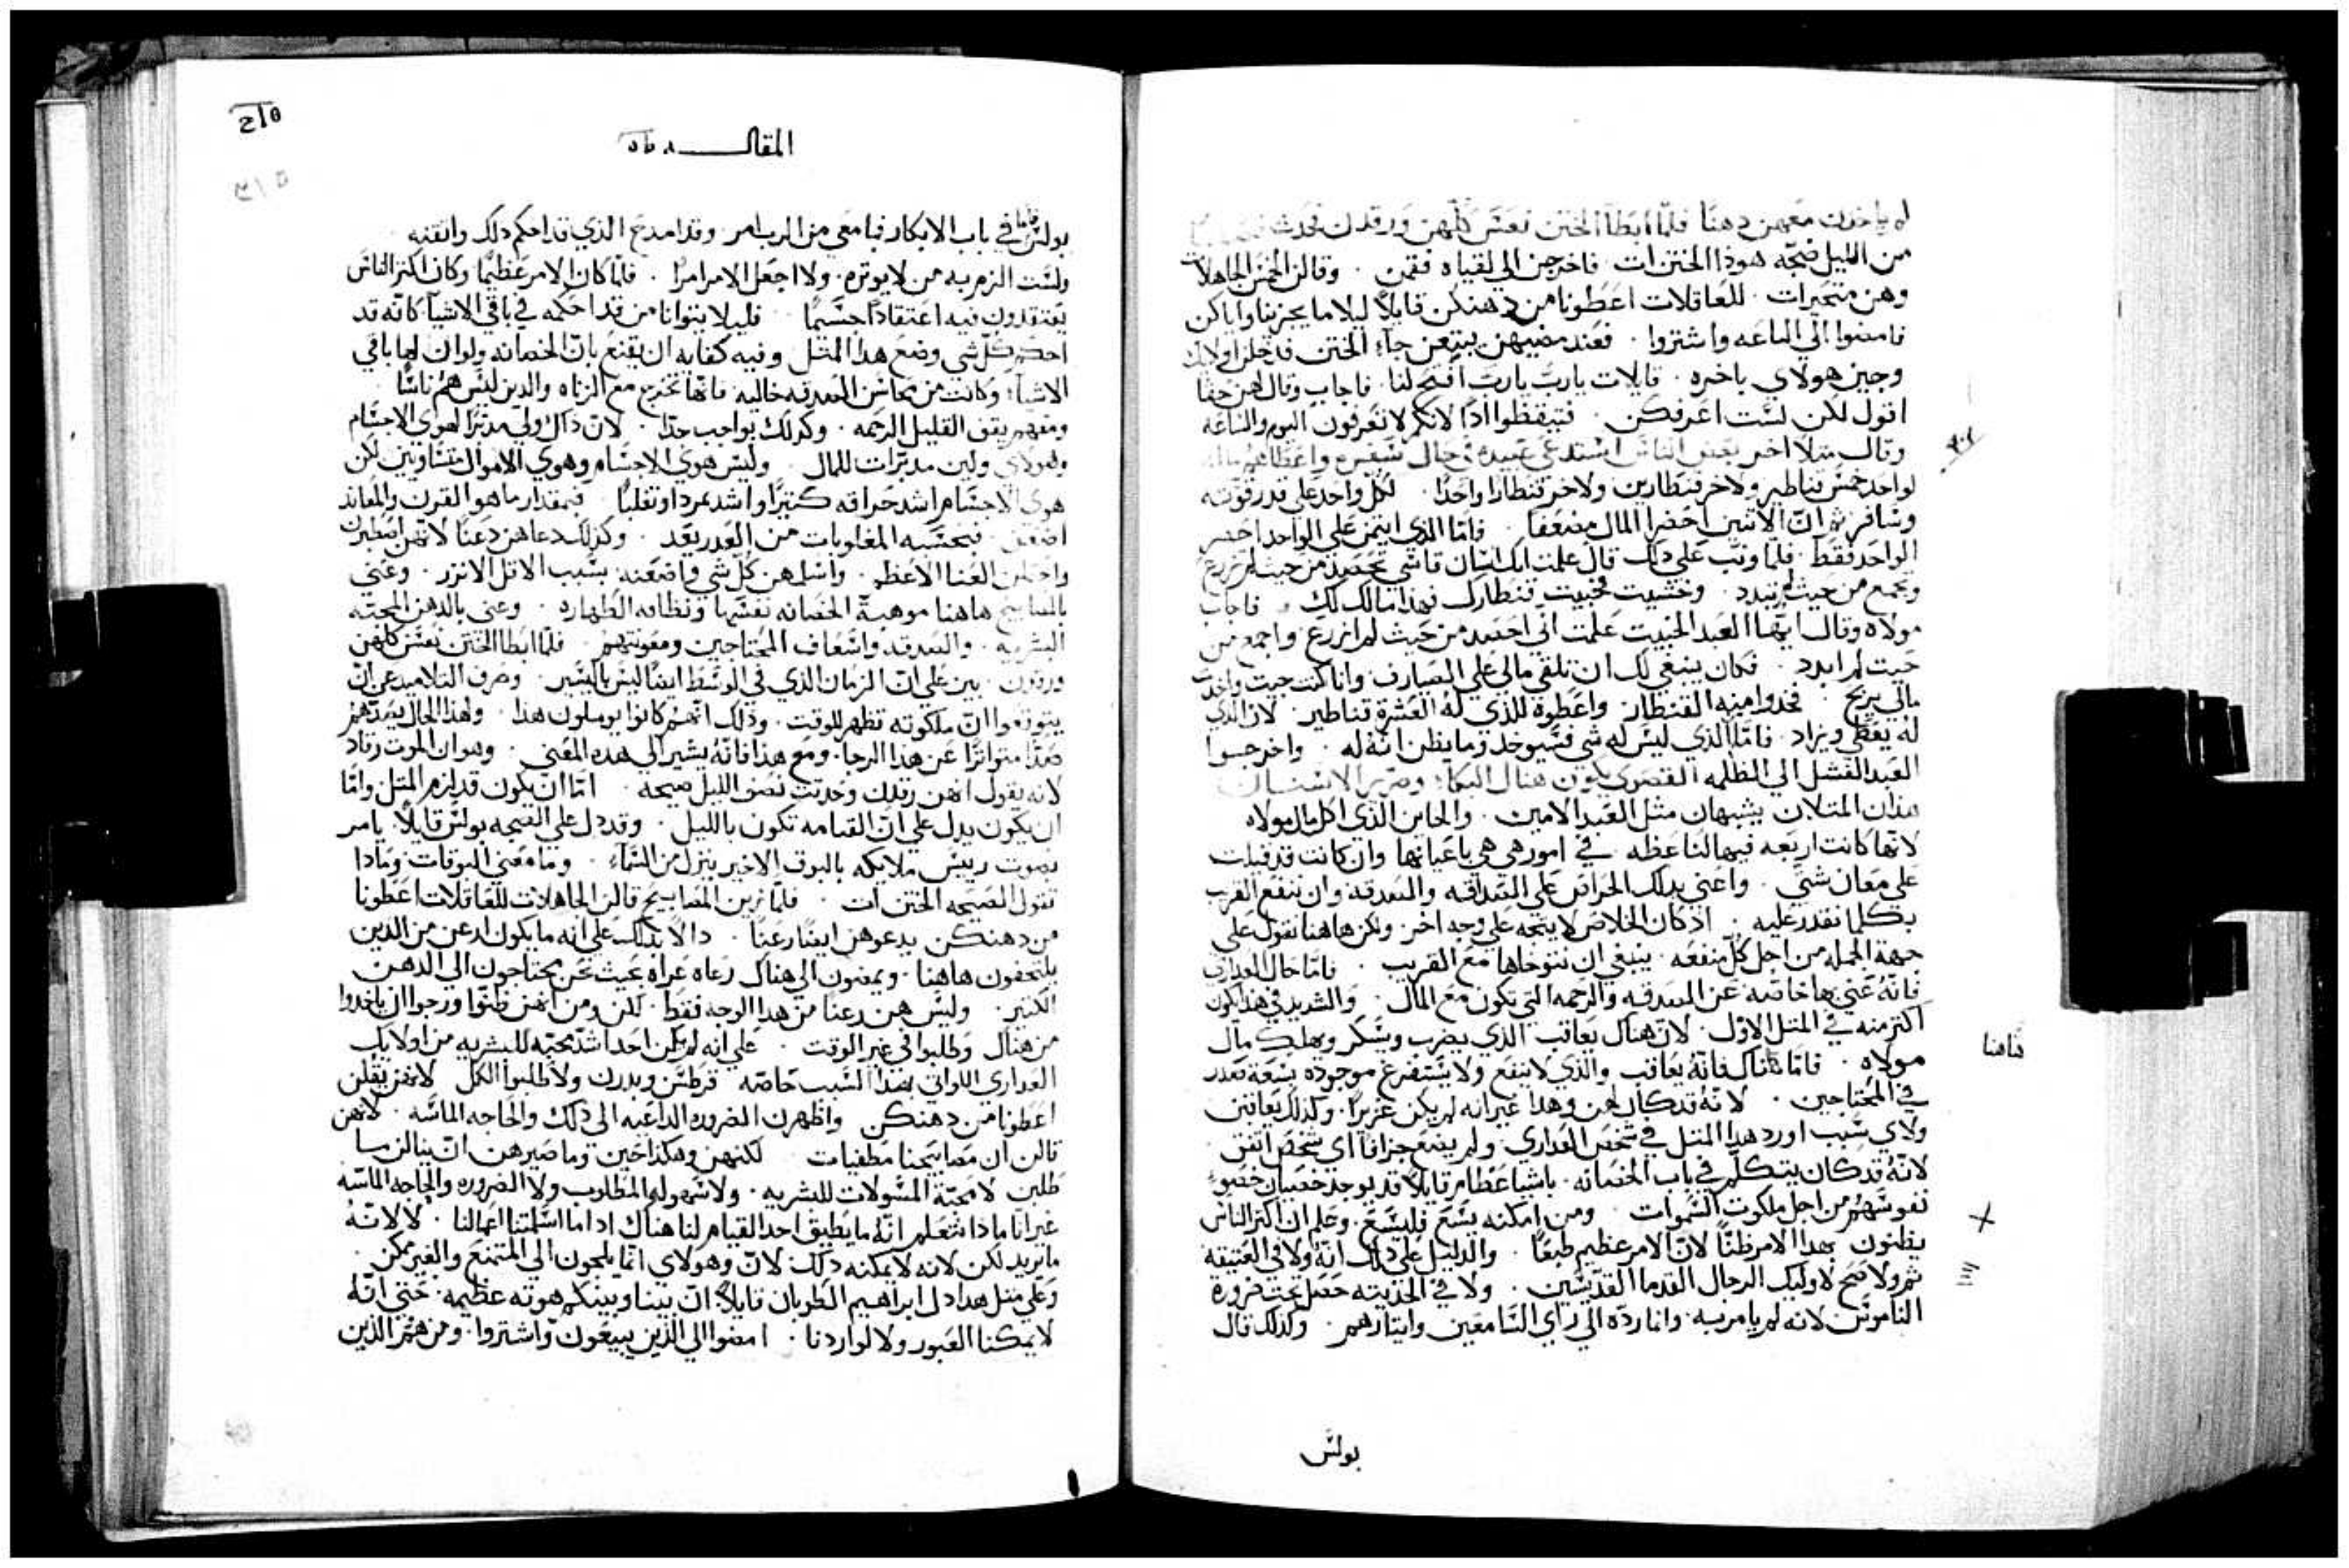 لم ياخذن معهن دهنًا فلمّا ابطا الختن نعسن كلّهن ورقدن فحدث
من الليل ضجه هوذا الختن ات فاخرجن الي لقياه فقمن وقالن الخمس الجاهلات
وهن متحيرات للعاقلات اعطونا من دهنكن قايلاً ليلا ما يجزينا واياكن
فامضوا الي الباعه واشتروا فعند مضيهن يبتعن جاء الختن فدخلن اولايك
وجين هولاي باخره قايلات يا ربّ يا ربّ افتح لنا فاجاب وقال لهن حقًا
اقول لكن لست اعرفكن فتيقظوا اذًا لانكم لا تعرفون اليوم والساعه
وقال مثلا اخر بعض الناس استدعي عبيده في حال سفره واعطاهم ماله
لواحد خمس قناطير ولاخر قنطارين ولاخر قنطارا واحدًا لكل واحد علي قدر قوته
وسافر ثم انّ الاثنين احضرا المال مضعفا فامّا الذي ايتمن علي الواحد احضر
الواحد فقط فلمّا وثب علي ذلك قال علمت انك انسان قاسي تحصد من حيث لم تزرع
وتجمع من حيث لم تبدد وخشيت فخبيت قنطارك فهذا مالك لك فاجاب
مولاه وقال ايها العبد الخبيث علمت اني احصد من حيث لم ازرع واجمع من
حيث لم ابدد فكان ينبغي لك ان تلقي مالي علي الصيارف وانا كنت جيت واخذت
مالي بربح فخذوا منه القنطار واعطوه للذي له العشرة قناطير لان الذي
له يعطي ويزاد فامّا الذي ليس له شي فسيوخذ وما يظن انه له واخرجوا
العبد الفشل الي الظلمه القصوي يكون هناك البكاء وصرير الاسنان
هذان المثلان يشبهان مثل العبد الامين والخاين الذي اكل مال مولاه
لانها كانت اربعه فيها لنا عظه في امور هي هي باعيانها وان كانت قد قيلت
علي معان شتي واعني بذلك الحرص علي الصداقه والصدقه وان ننفع القريب
بكلما نقدر عليه اذ كان الخلاص لا يتجه علي وجه اخر ولكن هاهنا نقول علي
جهة الجمله من اجل كل منفعه ينبغي ان نتوخاها مع القريب فامّا حال العذاري
فانه عني بها خاصه عن الصدقه والرحمه التي تكون مع المال والشديد في هذا يكون
اكثر منه في المثل الاوّل لان هناك يعاقب الذي يضرب ويسكر ويهلك مال
مولاه فامّا هناك فانه يعاقب والذي لا ينفع ولا يستفرغ موجوده بسعة صدر
في المحتاجين لانه قد كان لهن وهذا غير انه لم يكن غزيرًا ولذلك يعاقبن
ولاي سبب اورد هذا المثل في شخص العذاري ولم يضع جزافا اي شخص اتفق
لانه قد كان يتكلم في باب الخصانه باشيا عظام قايلاً قد يوجد خصيان خصوا
نفوسهم من اجل ملكوت السموات ومن امكنه يسع فليسع وعلم ان اكثر الناس
يظنون بهذا الامر ظنًّا لان الامر عظيم طبعًا والدليل علي ذلك انه ولا في العتيقه
ثم ولا صح لاوليك الرجال القدما القديسين ولا في الحديثه حصل تحت ضرورة
الناموس لانه لم يامر به وانما ردّه الي راي السامعين وايثارهم وكذلك قال
بولس
فاما
المقالـــه
٢١٥
بولس في باب الابكار فما معي من الرب امر وقد امدح الذي قد احكم ذلك واتقنه
ولست الزم به من لا يوثره ولا اجعل الامر امرًا فلمّا كان الامر عظيمًا وكان اكثر الناس
يعتقدون فيه اعتقادًا جسيمًا فليلا يتوانا من قد احكمه في باقي الاشيا كانه قد
احكم كل شي وضع هذا المثل وفيه كفايه ان يقنع بان الخصانه ولو ان لها باقي
الاشيا وكانت من محاسن الصدقه خاليه فانها تخرج مع الزناه والذين ليس هم ناسًا
ومعهم يقف القليل الرحمه وكذلك بواجب حدّا لان ذاك ولي مدبرًا لهوي الاجسام
وهولاي ولين مدبرات للمال وليس هوي الاجسام وهوي الاموال متساويين لكن
هوي الاجسام اشد حراقه كثيرًا واشد تمردا وتغلبًا فبمقدار ما هو القرن والمعاند
اضعف فبحسبه المغلوبات من العذر بعد وكذلك دعاهن رعنًا لانهن اصطبرن
واحتملن العنا الاعظم واسلمهن كل شي واضعنه بسبب الاقل الانزر وعني
بالمصابيح هاهنا موهبة الخصانه نفسها ونظافه الطهاره وعني بالدهن المحبّه
البشريه والصدقه واسعاف المحتاجين ومعونتهم فلمّا ابطا الختن نعسن كلهن
ورقدن بين علي ان الزمان الذي في الوسط ايضًا ليس باليسير وصرف التلاميد عن ان
يتوقعوا ان ملكوته تظهر للوقت وذلك انهم كانوا يوملون هذا ولهذا الحال يصدهم
صدًّا متواترًا عن هذا الرجا ومع هذا فانه يشير الي هذه المعني وهو ان الموت رقاد
لانه يقول انهن رقدن وحدثت نصف الليل ضجه امّا ان يكون قد لزم المثل وامّا
ان يكون يدل علي ان القيامه تكون بالليل وقد دل علي الضجه بولس قايلاً يامر
بصوت رييس ملايكه بالبوق الاخير ينزل من السماء وما معني البوقات وماذا
تقول الضجه الختن ات فلمّا زين المصابيح قالن الجاهلات للعاقلات اعطونا
من دهنكن يدعوهن ايضًا رعنًا دالاً بذلك علي انه ما يكون ارعن من الذين
يلتحفون هاهنا ويمضون الي هناك رعاه عراه بحيث نحن محتاجون الي الدهن
الكثير وليس هن رعنا من هذا الوجه فقط لكن ومن انهن ظنّوا ورجوا ان ياخذوا
من هناك وطلبوا في غير الوقت علي انه لم يكن احدا اشدّ محبّه للبشريه من اولايك
العذاري اللواتي بهذا السبب خاصه قرطسن وبدرن ولا طلبوا الكل لانهن يقلن
اعطونا من دهنكن واظهرن الضروره الداعيه الي ذلك والحاجه الماسّه لانهن
قالن ان مصابيحنا مطفيات لكنهن وهكذا خبن وما صيرهن ان ينالن ما
طلبن لا محبّة المسولات للبشريه ولا سهولة المطلوب ولا الضروره والحاجه الماسّه
غير انّا ماذا نتعلم انّه ما يطيق احد القيام لنا هناك اذا ما اسلمتنا اعمالنا لا لانّه
ما يريد لكن لانه لا يمكنه ذلك لانّ وهولاي انّما يلجون الي الممتنع والغير ممكن
وعلي مثل هذا دل ابراهيم الطوبان قايلاً انّ بيننا وبينكم هوته عظيمه حتي انّه
لا يمكننا العبور ولا لو اردنا امضوا الي الذين يبيعون واشتروا ومن هم الذين